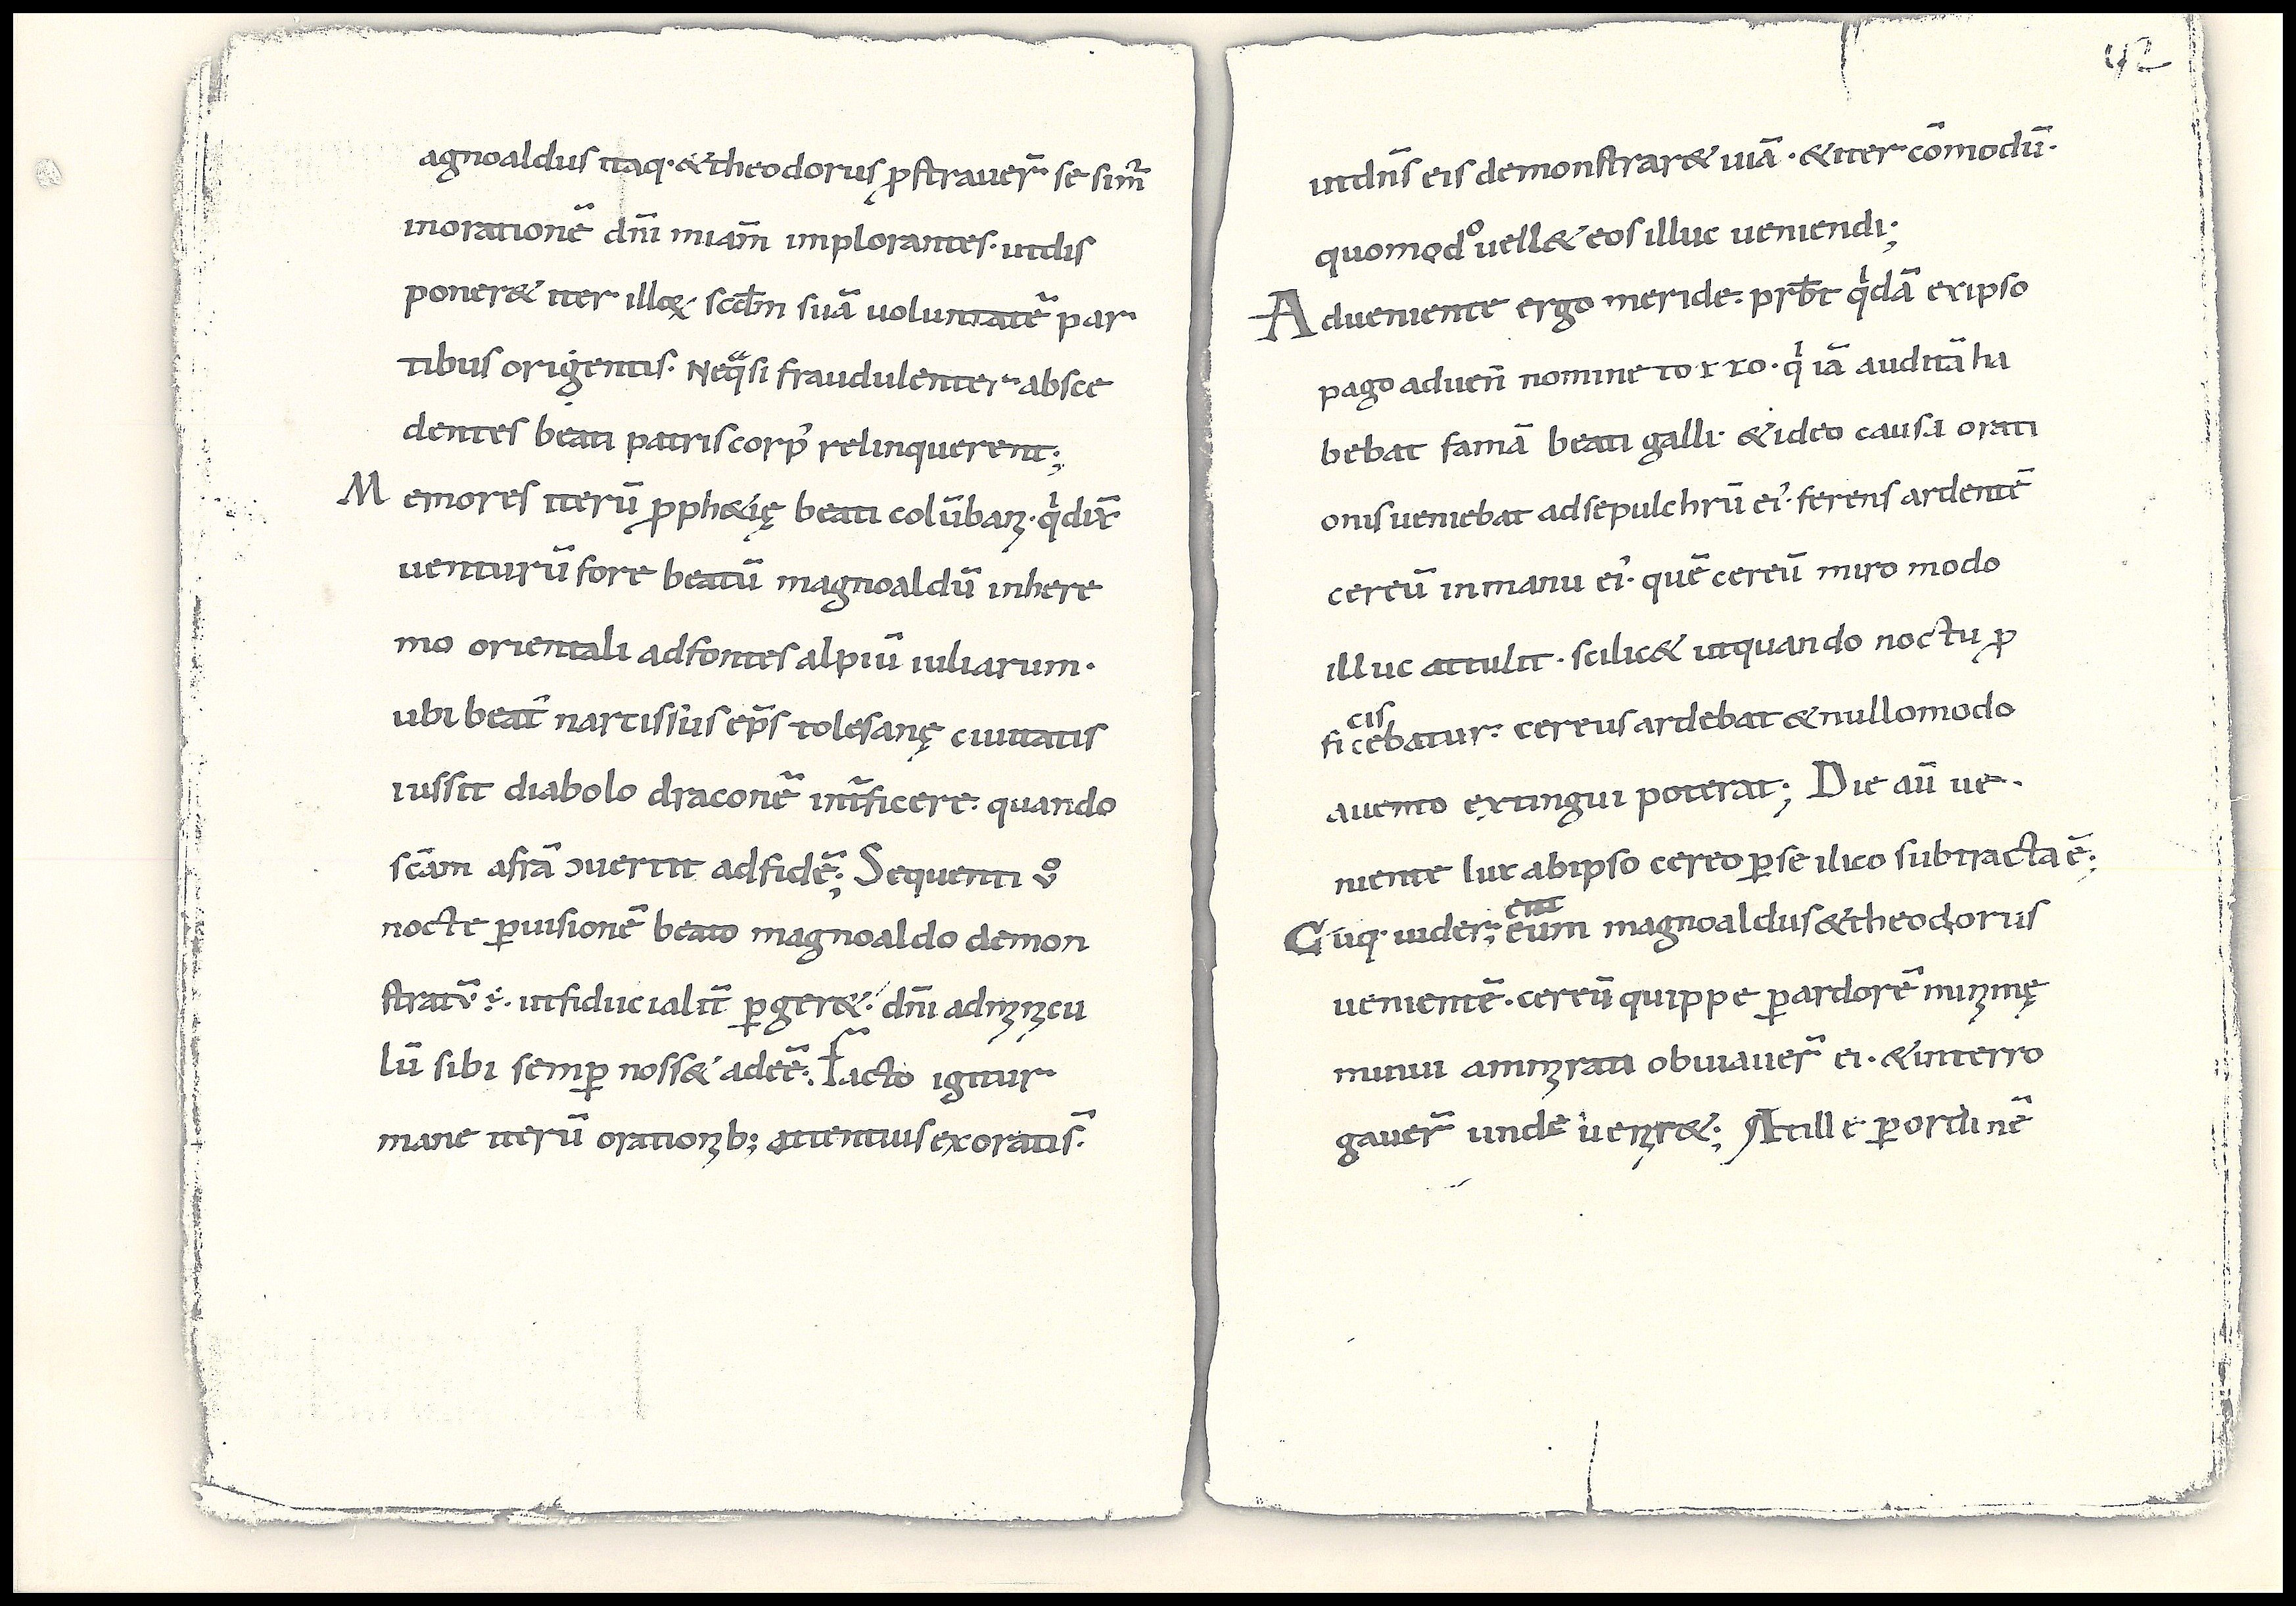 agnoaldus itaq·&theodorus ꝓstrauer̃ se sim̃
inorationẽ dñi miam̃ implorantes· utdis
poner& iter illoꝝ scđm suã uoluntatẽ par
tibus origentis· Neq̄si fraudulenter absce
dentes beati patris corp᾽ relinquerent;
M emores iterũ ꝓph&ię beati colũbani· qͥ dix̃
uenturũ fore beatũ magnoaldũ inhere
mo orientali adfontes alpiũ iuliarum·
ubi beat᾽ narcissus ep̃s tolesanę ciuitatis
iussit diabolo draconẽ int̃ficere· quando
scãm afrã ɔuertit adfidẽ; Sequenti uͦ
nocte ꝑuisionẽ beato magnoaldo demon
stratũ ẽ· utfiducialit̃ ꝑger&· dñi adminicu
lũ sibi semꝑ noss& adeẽ· Facto igitur
mane iterũ orationib; attentius exoratis·
42
utdñs eis demonstrar& uiã· &iter cõmodũ·
quomodͦ uell& eos illuc ueniendi;
Adueniente ergo meridie· prb̃t qͥdã exipso
pago aduen̄ nomine to x zo· qͥ iã auditã ha
bebat famã beati galli· &ideo causa orati
onis ueniebat adsepulchrũ ei᾽· ferens ardentẽ
cereũ inmanu ei᾽· quẽ cereũ miro modo
illuc attulit· scilic& utquando noctu ꝓ
cis
ficebatur· cereus ardebat &nullomodo
auento extingui poterat; Die aũ ue·
niente lux abipso cereo ꝑse ilico subtracta ẽ;
Cũq· uider; eum magnoaldus&theodorus
uenientẽ· cereũ quippe ꝑardorẽ minimę
minui ammirati obuiauer̃ ei· &interro
gauer̃ unde uenir&; Atille ꝑordinẽ